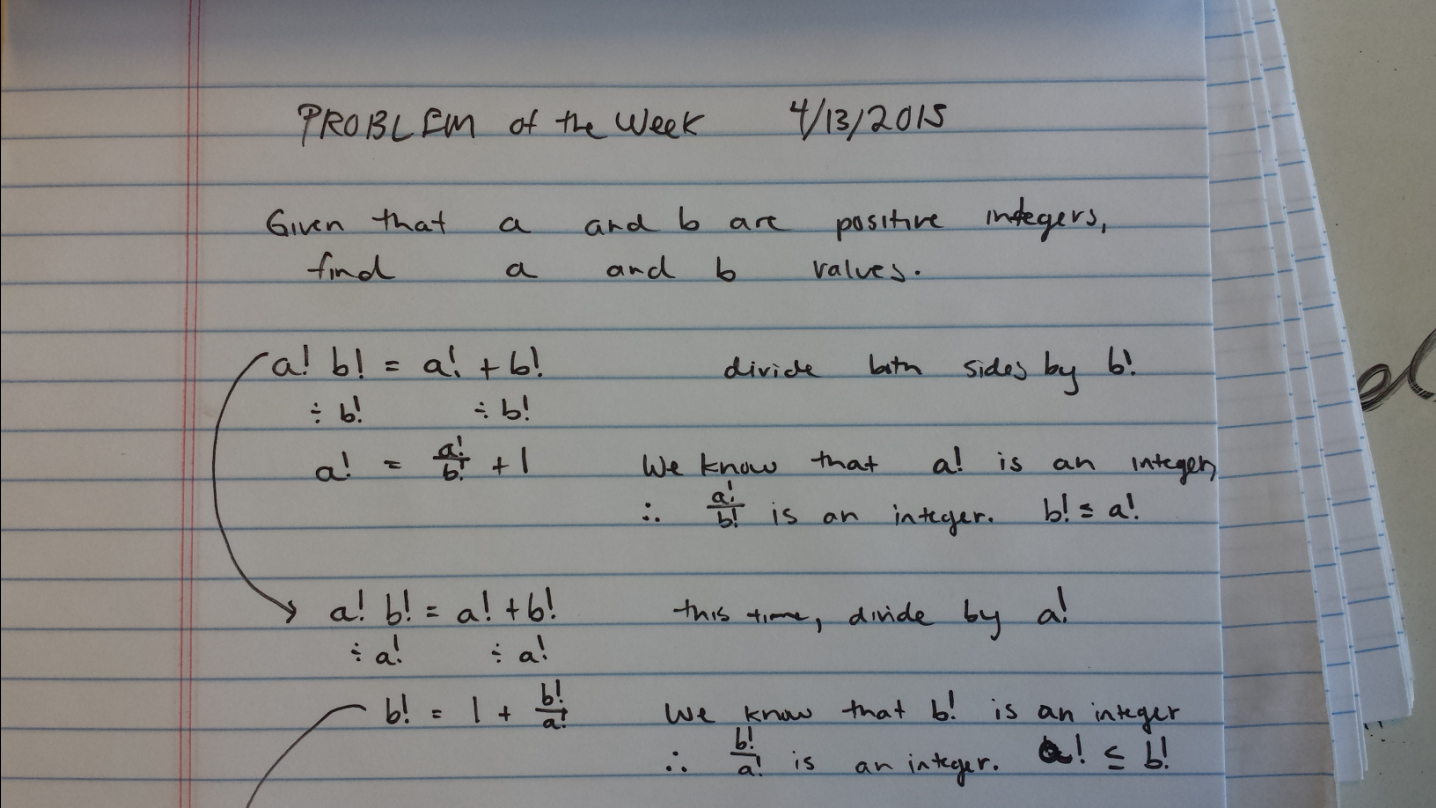 PROBLEM of the Week 4/13/2015
Given that a and b are positive integers,
find a and b values.
a! b! = a! + b! divide both sides by b!
÷ b! ÷ b!
a! = a!/b! + 1 We know that a! is an integer,
∴ a!/b! is an integer. b! ≤ a!
a! b! = a! + b! this time, divide by a!
÷ a! ÷ a!
b! = 1 + b!/a! We know that b! is an integer
∴ b!/a! is an integer. a! ≤ b!